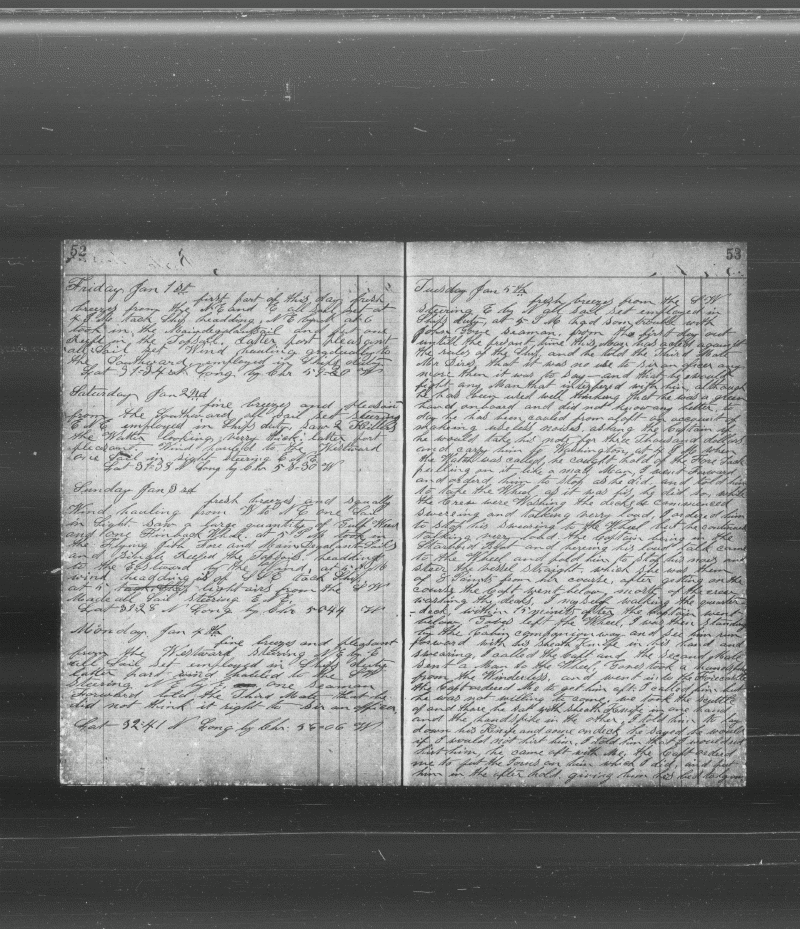 52
Friday Jan 1st
first part of this day fresh
breezes from the N E and E all sail set at
4 P M tack Ship heading N E by N at 6
took in the Maindeplantsail and put one
Reefe in the Topsail, Latter part pleasant
all Sail set Wind hauling gradually to
the Southward, employed in Ships duty
Lat 31-34 N Long by Chr. 58-20 W
Saturday Jan 2nd
fine breezes and pleasant
from the Southward, all sail set steering
E N E employed in Ships duty, saw 2
the Water looking very thick; latter part
pleasant, Wind hauled to the Westward
one Sail in sight steering E N E
Lat 31-38 N Long by Chr 58-30 W
Sunday Jan 3rd
fresh breezes and squally
Wind hauling from to N E one Sail
in Sight Saw a large quantity of Gulf Weed
and one Finback Whale. at 5 P M took in
the Flying Jib Fore and Main
and the Topsail heading
to the Eastward by the Wind, at
wind heading us off S S E tack Ship
at 6 light airs from the S W
made Sail steering E
Lat 31-28 N Long by Chr. 50-44 W
Monday Jan 4th
fine breezes and pleasant
from the Westward stearing N E by E
all Sail set employed in Ships duty
latter part wind hauled to the S W
stearing E by N one seamen
told the Third Mate that he
did not think it right to Sir an officer
Lat 32-41 N Long by Chr. 56-06 W
53
Tuesday Jan 5th
fresh breezes from the S W
steering E by N all sail set employed in
Ships duty, at 5 P M had some trouble with
John seaman, from the first day out
untill the present time this man has acted against
the rules of the Ship, and he told the Third Mate
Mr Sires, that it was no use to sir an officer any
more then it was to say and that he would
fight any Man that interfered with him, although
he has been used well thinking that he was a green
hand onboard and did not know any better,
day he has been cautioned about
making useless noises, asking the Captain if
he would take his note for three Thousand dollars
and carry him to Washington, at 5 P M when
the Watch was called, he caught hold of the Fore Tack
pulling on it like a mad Man, I went forward
and ordered him to stop as he did, and told him
to take the Wheel, as it was his, he did so, while
the Crew were Washing the decks he commenced
swearing and talking very loud, I ordered him
to stop his swearing to the Wheel but he continued
talking very loud the Captain being in the
Starboard and hearing his loud talk came
to the Wheel and told him to stop his noise and
steer the vessel straight which she was then
of 2 Points from her course, after getting on the
course the Capt went below, most of the crew
washing the decks, I myself walking the quarter
deck, within 15 minits after the Captain went
below, left the Wheel, I was then standing
by the Cabin companionway and see him run
forward with his sheath Knife in his hand and
swearing, I called the Captain and the second Mate
sent a Man to the Wheel, took a handspike
from the Winderless, and went in to the Forecastle
the Capt ordered me to get him up, I called him but
he was not willing to come, we took the scuttle
of and there he sat with sheath Knife in one hand
and the handspike in the other, I told him to lay
down his Knife and come on deck, he sayed he would
if I would not hurt him, I told him that I would not
hurt him, he came aft with me, the Capt ordered
me to put the Irons on him which I did, and put
him in the after hold, giving him his bed